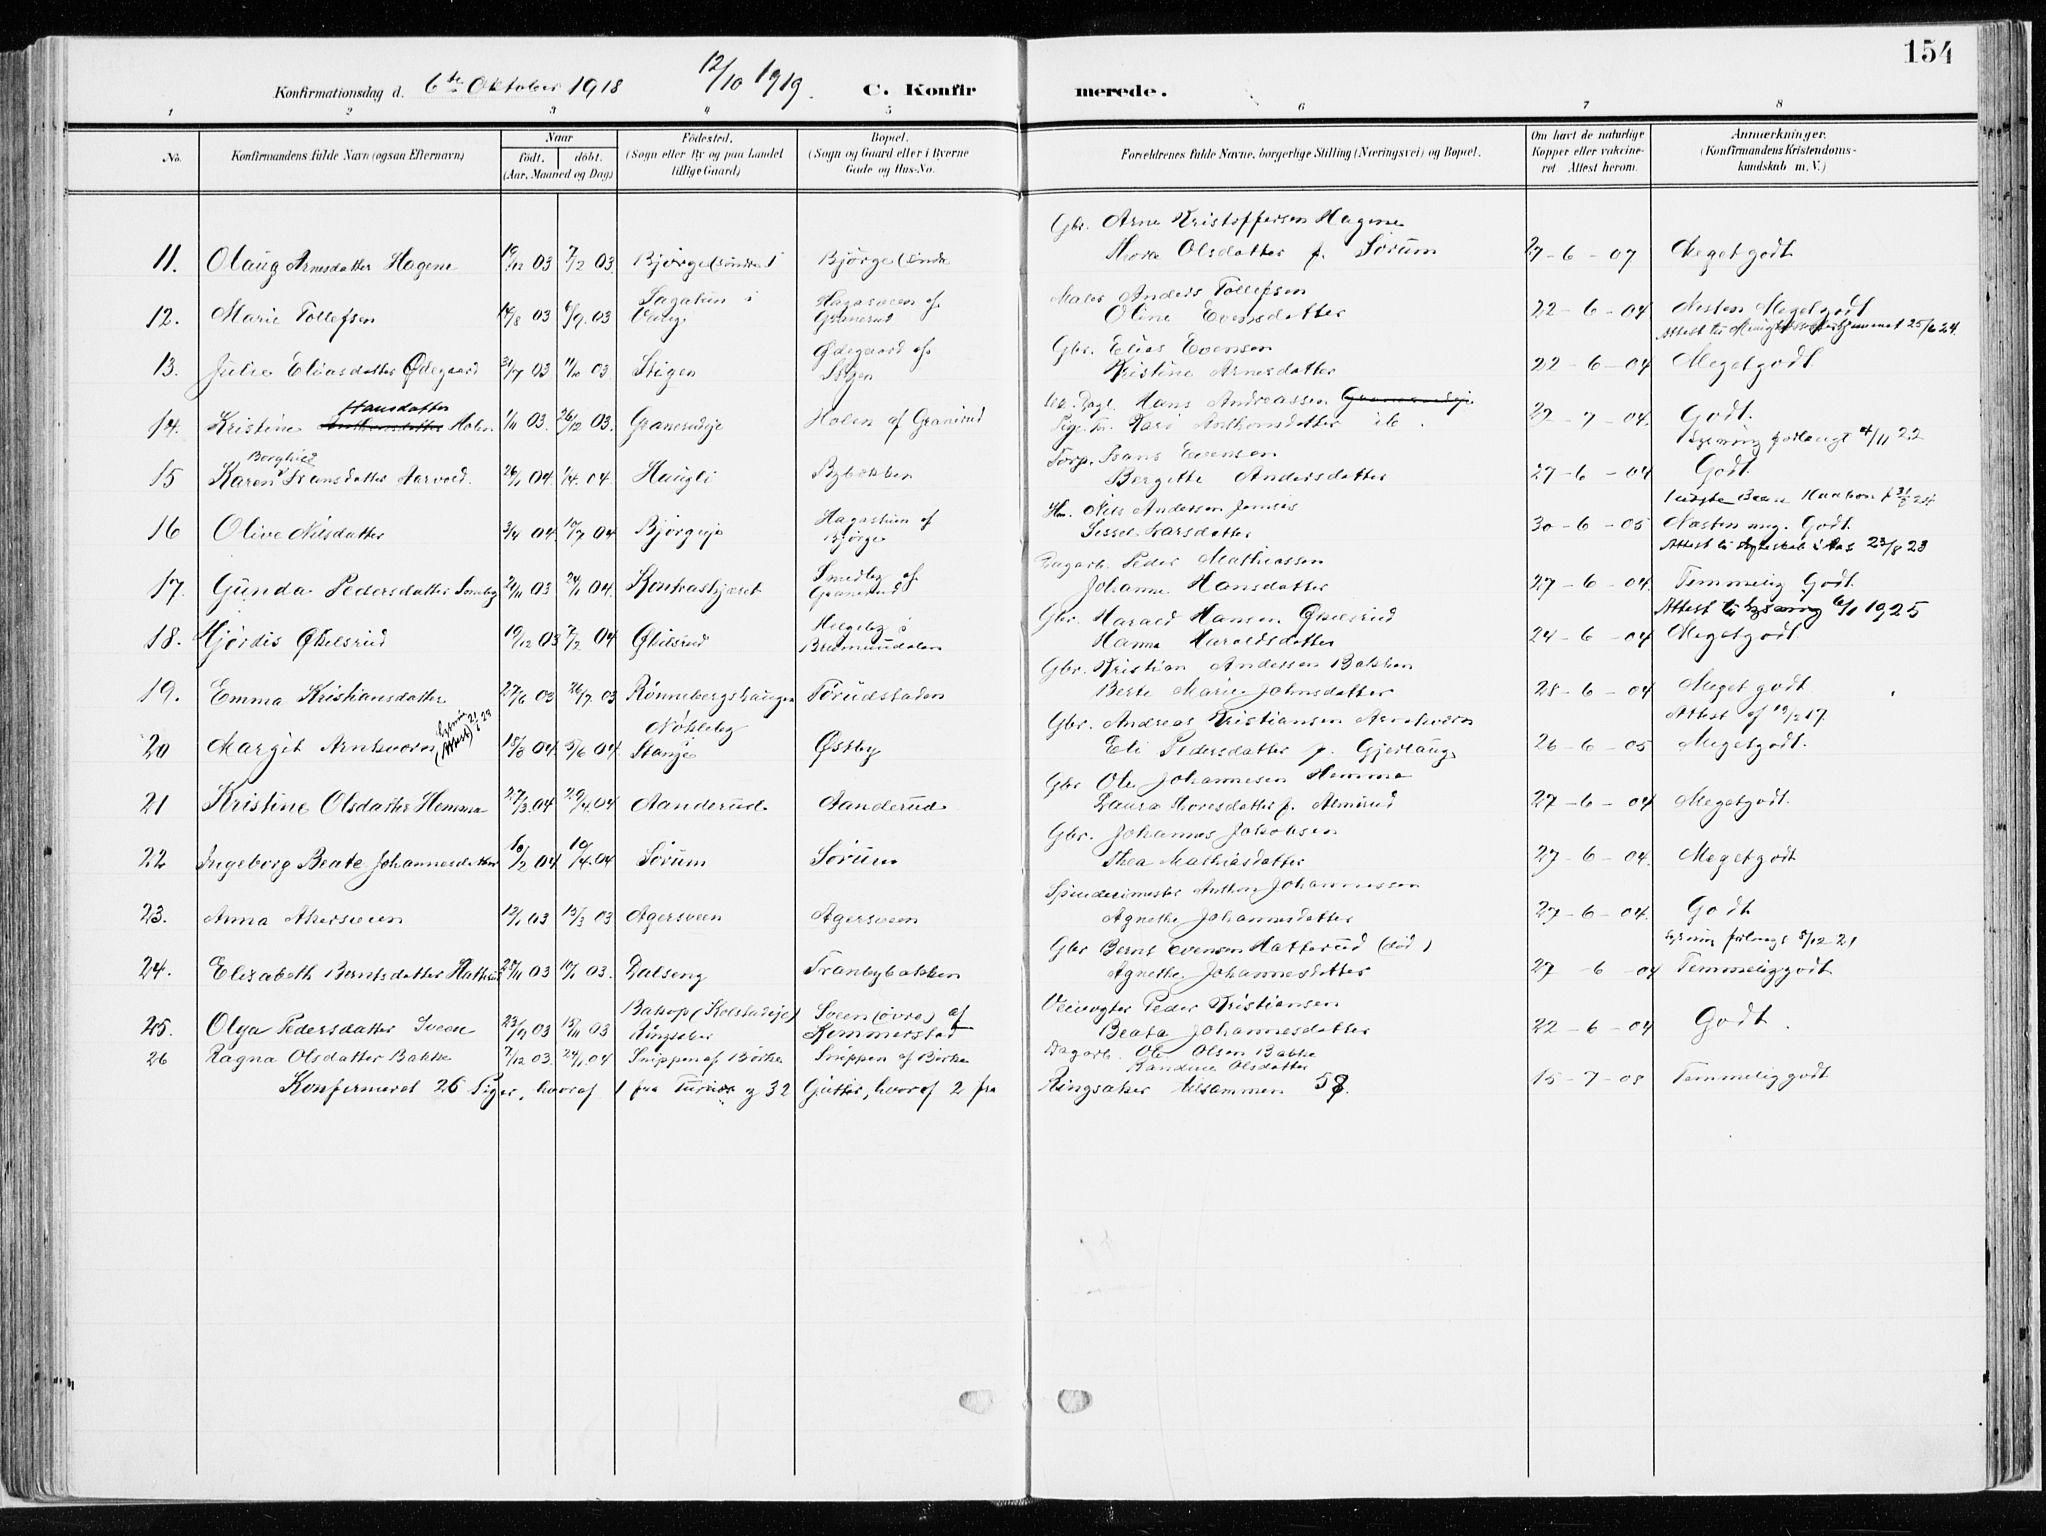 154
Konfirmationsdag d. 6te Oktober 1918 12/10 1919. C. Konfirmerede.
1 2 3 4 5 6 7 8
No. Konfirmandens fulde Navn (ogsaa Efternavn) Naar født, døbt. (Aar, Maaned og Dag) Fødested. (Sogn eller By og paa Landet tillige Gaard) Bopæl. (Sogn og Gaard eller i Byerne Gade og Hus-No. Forældrenes fulde Navne, borgerlige Stilling (Næringsvei) og Bopæl. Om havt de naturlige Kopper eller vakcineret Attest herom. Anmærkninger. (Konfirmandens Kristendomskundskab m. V.)
Gbr. Arne Kristoffersen Hagene
11. Olaug Arnesdatter Hagene 03 7/2 03 Bjørge Bjørge Thora Olsdatter f. Sørum 27-6-07 Meget godt
Maler Anders Tollefsen
12. Marie Tollefsen 14/8 03 6/9 03 Sagatun i Vang Hagasveen af Granerud Oline Evensdatter 22-6-04 Næsten Meget godt
25/6 24
Gbr. Elias Evensen
13. Julie Eliasdatter Ødegaard 31/7 03 11/10 03 Stigen Ødegaard af Stigen Kristine Arnesdatter 22-6-04 Meget godt
Hans Andreassen
14. Kristine Hansdatter Holen 1/11 03 26/12 03 Granerudeje Holen af Granerud Kari Anthonsdatter 22-7-04 Godt.
Lysning forlangt 4/11 22
Torp. Isans Evensen
15 Karen Borghild Isansdatter Aarvold 26/1 04 1/4 04 Haugli Bybakken Bergitte Andersdatter 27-6-04 Godt
Hm. Nils Andersen
16 Olive Nilsdatter 3/4 04 17/7 04 Bjørgeje Hagastuen af Bjørge Sissel Larsdatter 30-6-05 Næsten meg. Godt
Attest til Ægteskab i Aas 23/8 23
Dagarb. Peder Mathiassen
17. Gunda Pedersdatter Smeby 21/11 03 24/1 04 Kontraskjæret Smedby af Granerud Johanne Hansdatter 27-6-04 Temmelig Godt
Attest til Lysning 6/1 1925
Gbr. Harald Hansen Økelsrud
18. Hjørdis Økelsrud 19/12 03 7/2 04 Økilsrud Helgeby i Brumunddalen Hanna Haraldsdatter 24-6-04 Meget godt
Gbr. Kristian Andersen Bakken
19. Emma Kristiansdatter 27/6 03 26/7 03 Rønnebergshaugen Torudstaden Berte Marie Johnsdatter 28-6-04 Meget godt
Attest af 19/2 17.
Gbr. Andreas Kristiansen Arntkværn
20 Margit Arntkværn 04 5/6 04 Nøkleby Stange Østby Eli Pedersdatter f. Gjerlaug 26-6-05 Meget godt.
Gbr Ole Johannesen Hemma
21 Kristine Olsdatter Hemma 27/2 04 04 Aanderud Aanderud Laura Thoresdatter f. Almirud 27-6-04 Meget godt.
Gbr. Johannes Jakobsen
22 Ingeborg Beate Johannesdatter 10/2 04 10/4 04 Sørum Sørum Thea Mathiasdatter 27-6-04. Meget godt
Spinderimester Anthon Johannessen
23. Anna Akersveen 03 15/3 03 Agersveen Agersveen Agnethe Johannesdatter 27-6-04. Godt
Lysning forlangt 5/12 21
Gbr Bernt Evensen Hatterud (død)
24. Elisabeth Berntsdatter Hatterud 03 03. Dalseng Tranbybakken Agnethe Johannesdatter 27 6-04 Temmelig godt
Veivogter Peder Kristiansen
25. Olga Pedersdatter Sveen 23/9 03 15/11 03 Bakop (Kolstadeje) Ringsaker Sveen (øvre) af Kemmerstad Beata Johannesdatter 22-6-04 Godt.
26 Ragna Olsdatter Bakke 7/12 03. 24/1 04 Snippen af Børke Snippen af Børke Dagarb. Ole Olsen Bakke
Randine Olsdatter 15-7-08 Temmelig godt
Konfirmeret 26 Piger, hvoraf 1 fra Furnes og 32 Gutter, hvoraf 2 fra Ringsaker tilsammen 58.